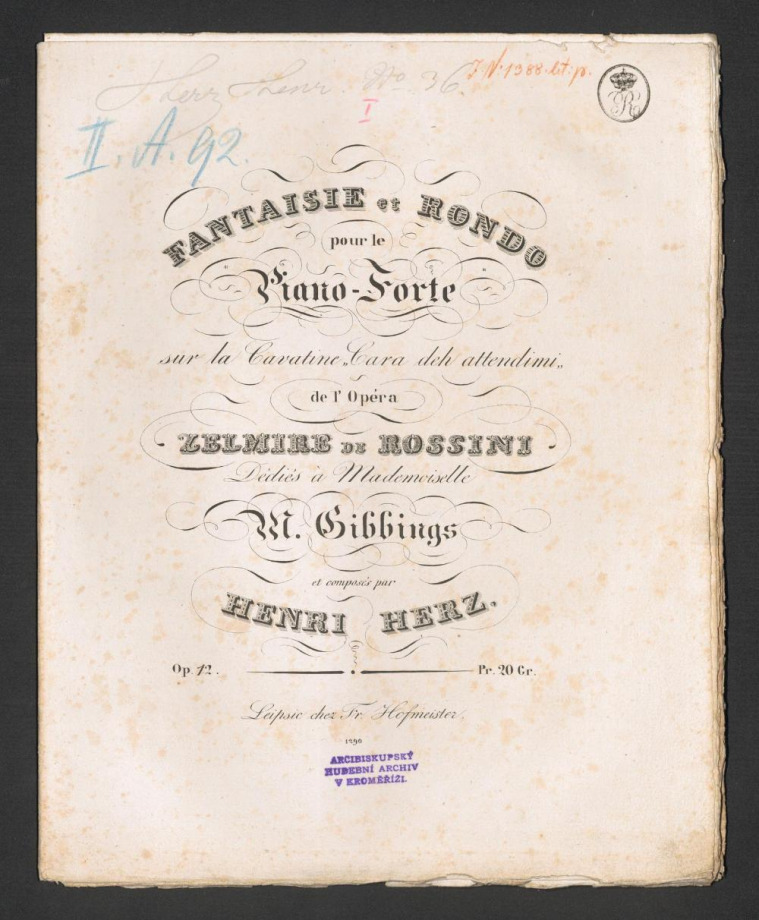 Herz Henr. No. 36.
J. N: 1388. lit: p.
I
II. A. 92.
FANTAISIE et RONDO
pour le
Piano-Forte
sur la Cavatine „Cara deh attendimi„
de l' Opéra
ZELMIRE DE ROSSINI
Dédiés à Mademoiselle
M. Gibbings
et composés par
HENRI HERZ.
Op. 12.
Pr. 20 Gr.
Leipsic chez Fr. Hofmeister.
1296
ARCIBISKUPSKÝ
HUDEBNÍ ARCHIV
V KROMĚŘÍŽI.